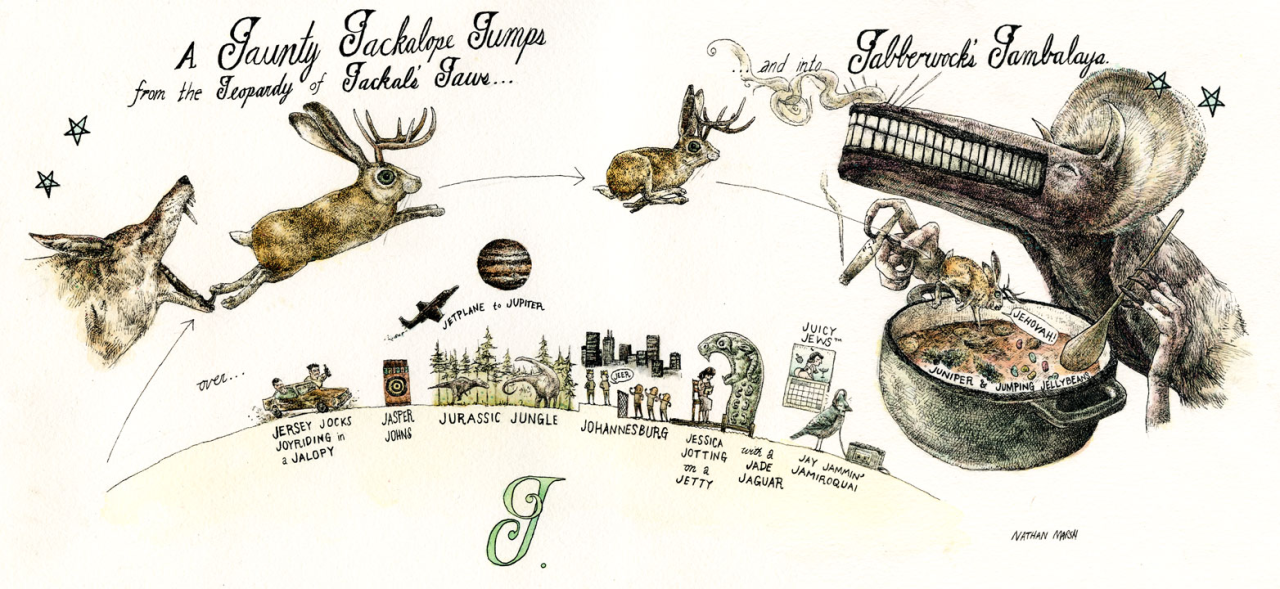 A Jaunty Jackalope Jumps
from the Jeopardy of Jackals' Jaws...
...and into Jabberwock's Jambalaya.
over...
JETPLANE to JUPITER
JERSEY JOCKS
JOYRIDING in
a JALOPY
JASPER
JOHNS
JURASSIC JUNGLE
JEER
JOHANNESBURG
JESSICA
JOTTING
on a
JETTY
with a
JADE
JAGUAR
JUICY
JEWS™
JAY JAMMIN'
JAMIROQUAI
JEHOVAH!
JUNIPER & JUMPING JELLYBEANS
J.
NATHAN MARSH